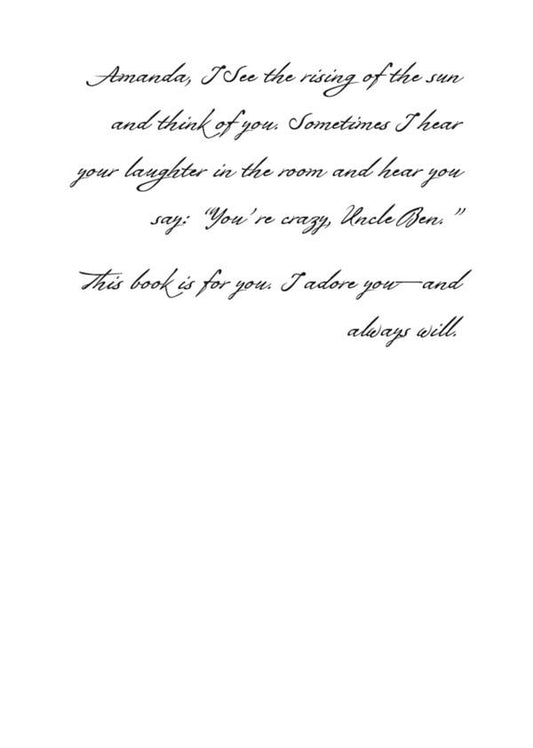 Amanda, I See the rising of the sun
and think of you. Sometimes I hear
your laughter in the room and hear you
say: “You’re crazy, Uncle Ben.”
This book is for you. I adore you—and
always will.